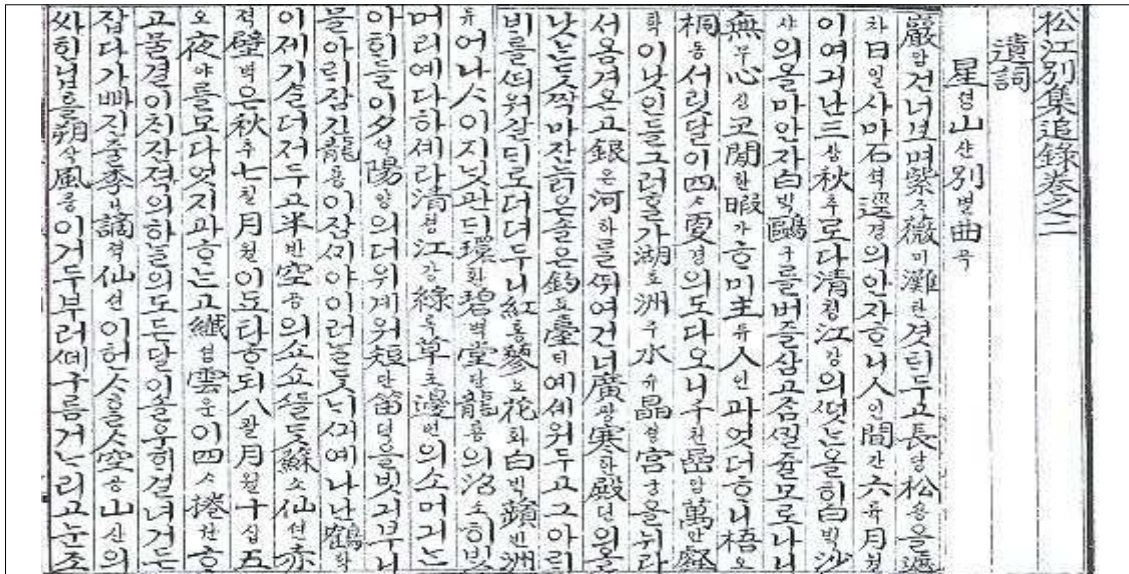 松江別集追錄卷之二
遺詞
星셩山산別별曲곡
巖암건너보며紫ᄌᆞ薇미灘탄겻ᄐᆡ두고長댱松숑을遮
차日일사마石셕逕경의안자ᄒᆞ니人인間간六뉵月월
이여긔난三삼秋추로다淸쳥江강의ᄯᅥᆺᄂᆞᆫ올히白ᄇᆡᆨ沙
사의올마안자白ᄇᆡᆨ鷗구를버즐삼고ᄌᆞᆷᄭᆡᆯ줄모로나니
無무心심코閒한暇가ᄒᆞ미主쥬人인과엇더ᄒᆞ니梧오
桐동서릿달이四ᄉᆞ更경의도다오니千쳔巖암萬만壑
학이낫인들그러ᄒᆞᆯ가湖호洲주水슈晶졍宮궁을뉘라
셔옴겨온고銀은河하를ᄯᅱ여건너廣광寒한殿뎐의올
낫ᄂᆞᆫᄃᆞᆺᄶᅡᆨ마잔늙은솔은釣됴臺ᄃᆡ예셰워두고그아ᄅᆡ
ᄇᆡ를ᄯᅴ워갈ᄃᆡ로더뎌두니紅홍蓼뇨花화白ᄇᆡᆨ蘋빈洲
쥬어나ᄉᆞ이지낫관ᄃᆡ環환碧벽堂당龍룡의沼소히ᄇᆡᆺ
머리예다하셰라淸쳥江강綠록草초邊변의쇼머기ᄂᆞᆫ
아ᄒᆡ들이夕셕陽양의어위계워短단笛뎍을빗기부니
믈아ᄅᆡ잠긴龍룡이잠ᄭᆡ야이러날ᄃᆞᆺᄂᆡᄭᅴ예나난鶴학
이제기슬더져두고半반空공의소소ᄯᅳᆯᄃᆞᆺ蘇소仙션赤
젹壁벽은秋추七칠月월이됴타ᄒᆞ되八팔月월十십五
오夜야를모다엇지과ᄒᆞᄂᆞᆫ고纖셤雲운이四ᄉᆞ捲권ᄒᆞ
고물결이치잔적의하ᄂᆞᆯ의도든달이솔우희걸녀거든
잡다가ᄲᅡ진줄이謫젹仙션이헌ᄉᆞᄒᆞᆯᄉᆞ空공山산의
싸힌닙흘朔삭風풍이거두부러ᄯᅦ구름거ᄂᆞ리고눈조